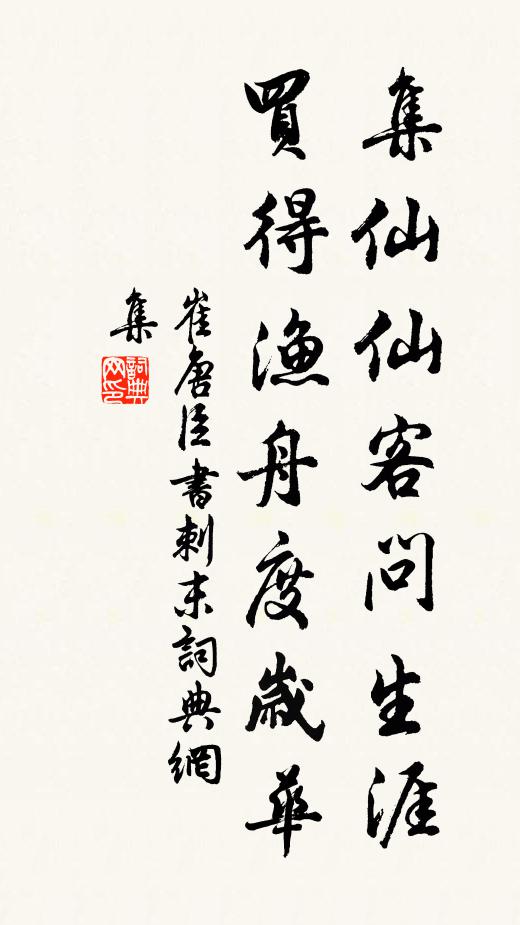 集仙仙客問生涯
買得漁舟度歲華
崔唐臣書刺末詞典網
集
詞典網印